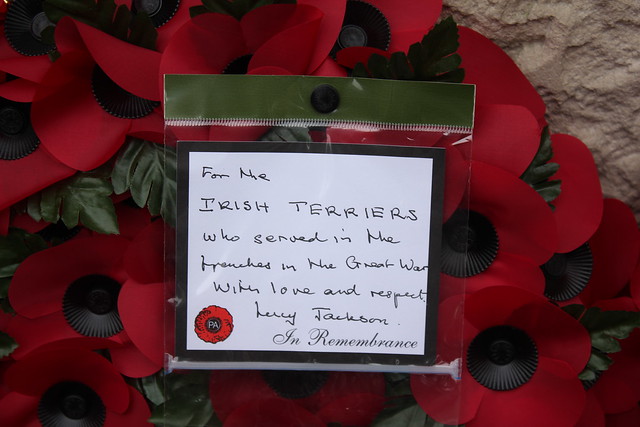 For the
IRISH TERRIERS
who served in the
trenches in the Great War
With love and respect.
Lucy Jackson.
PA
In Remembrance